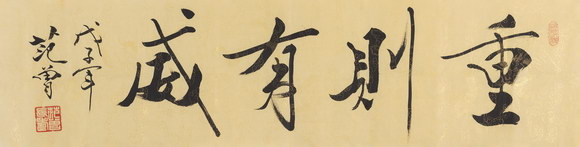 重則有威
戊子年
范曾